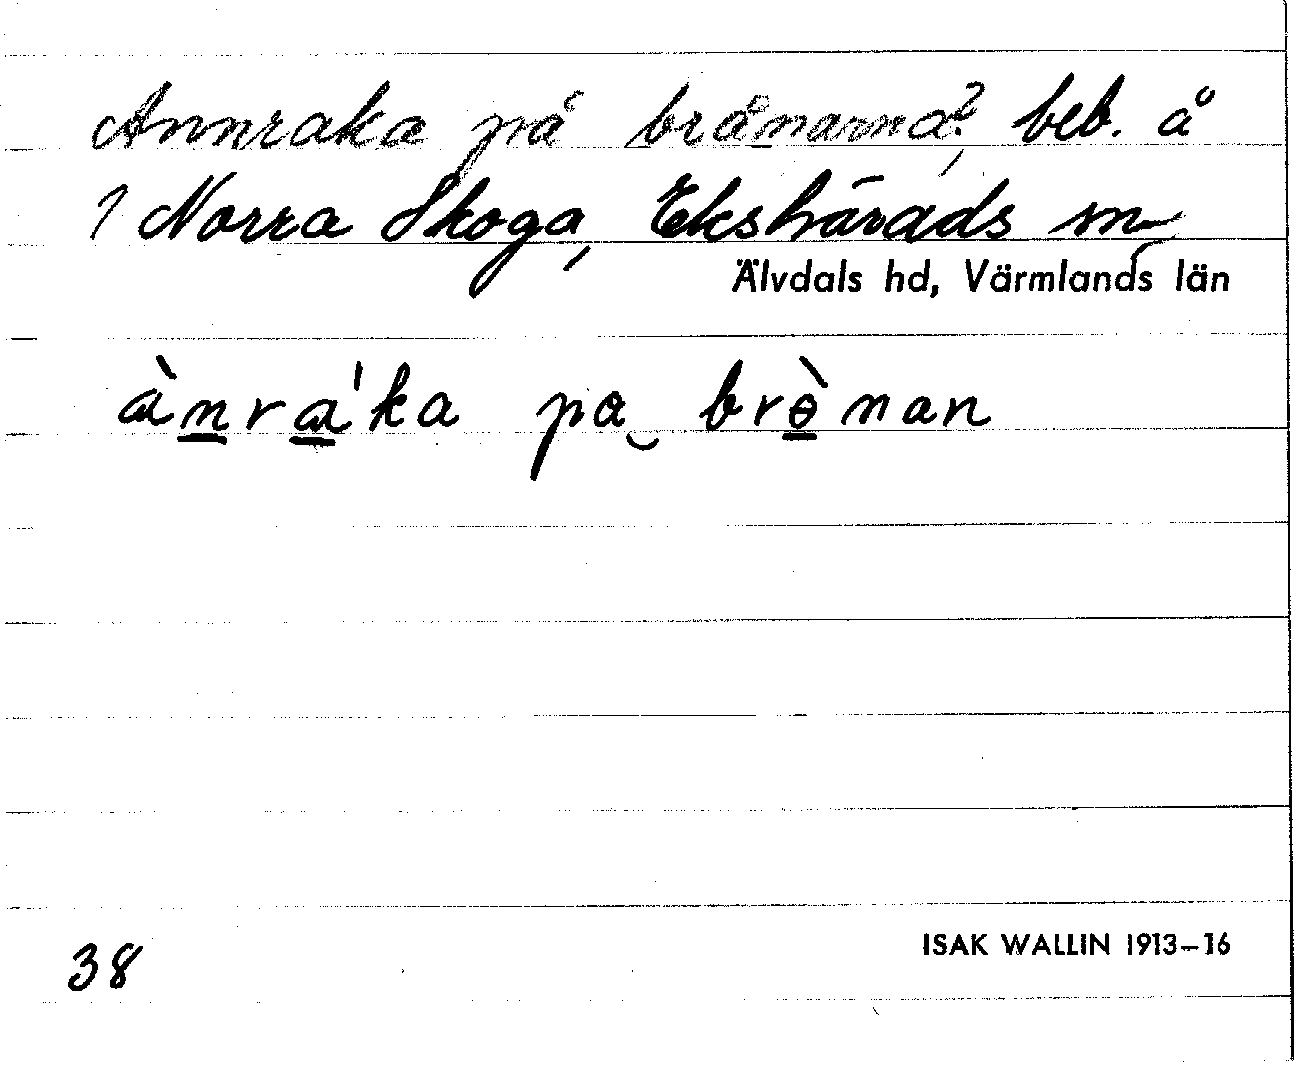 Annraka på brånarna?, beb. å
1 Norra Skoga, Ekshärads sn
Älvdals hd, Värmlands län
ànra'ka pa brònan
38
ISAK WALLIN 1913–16